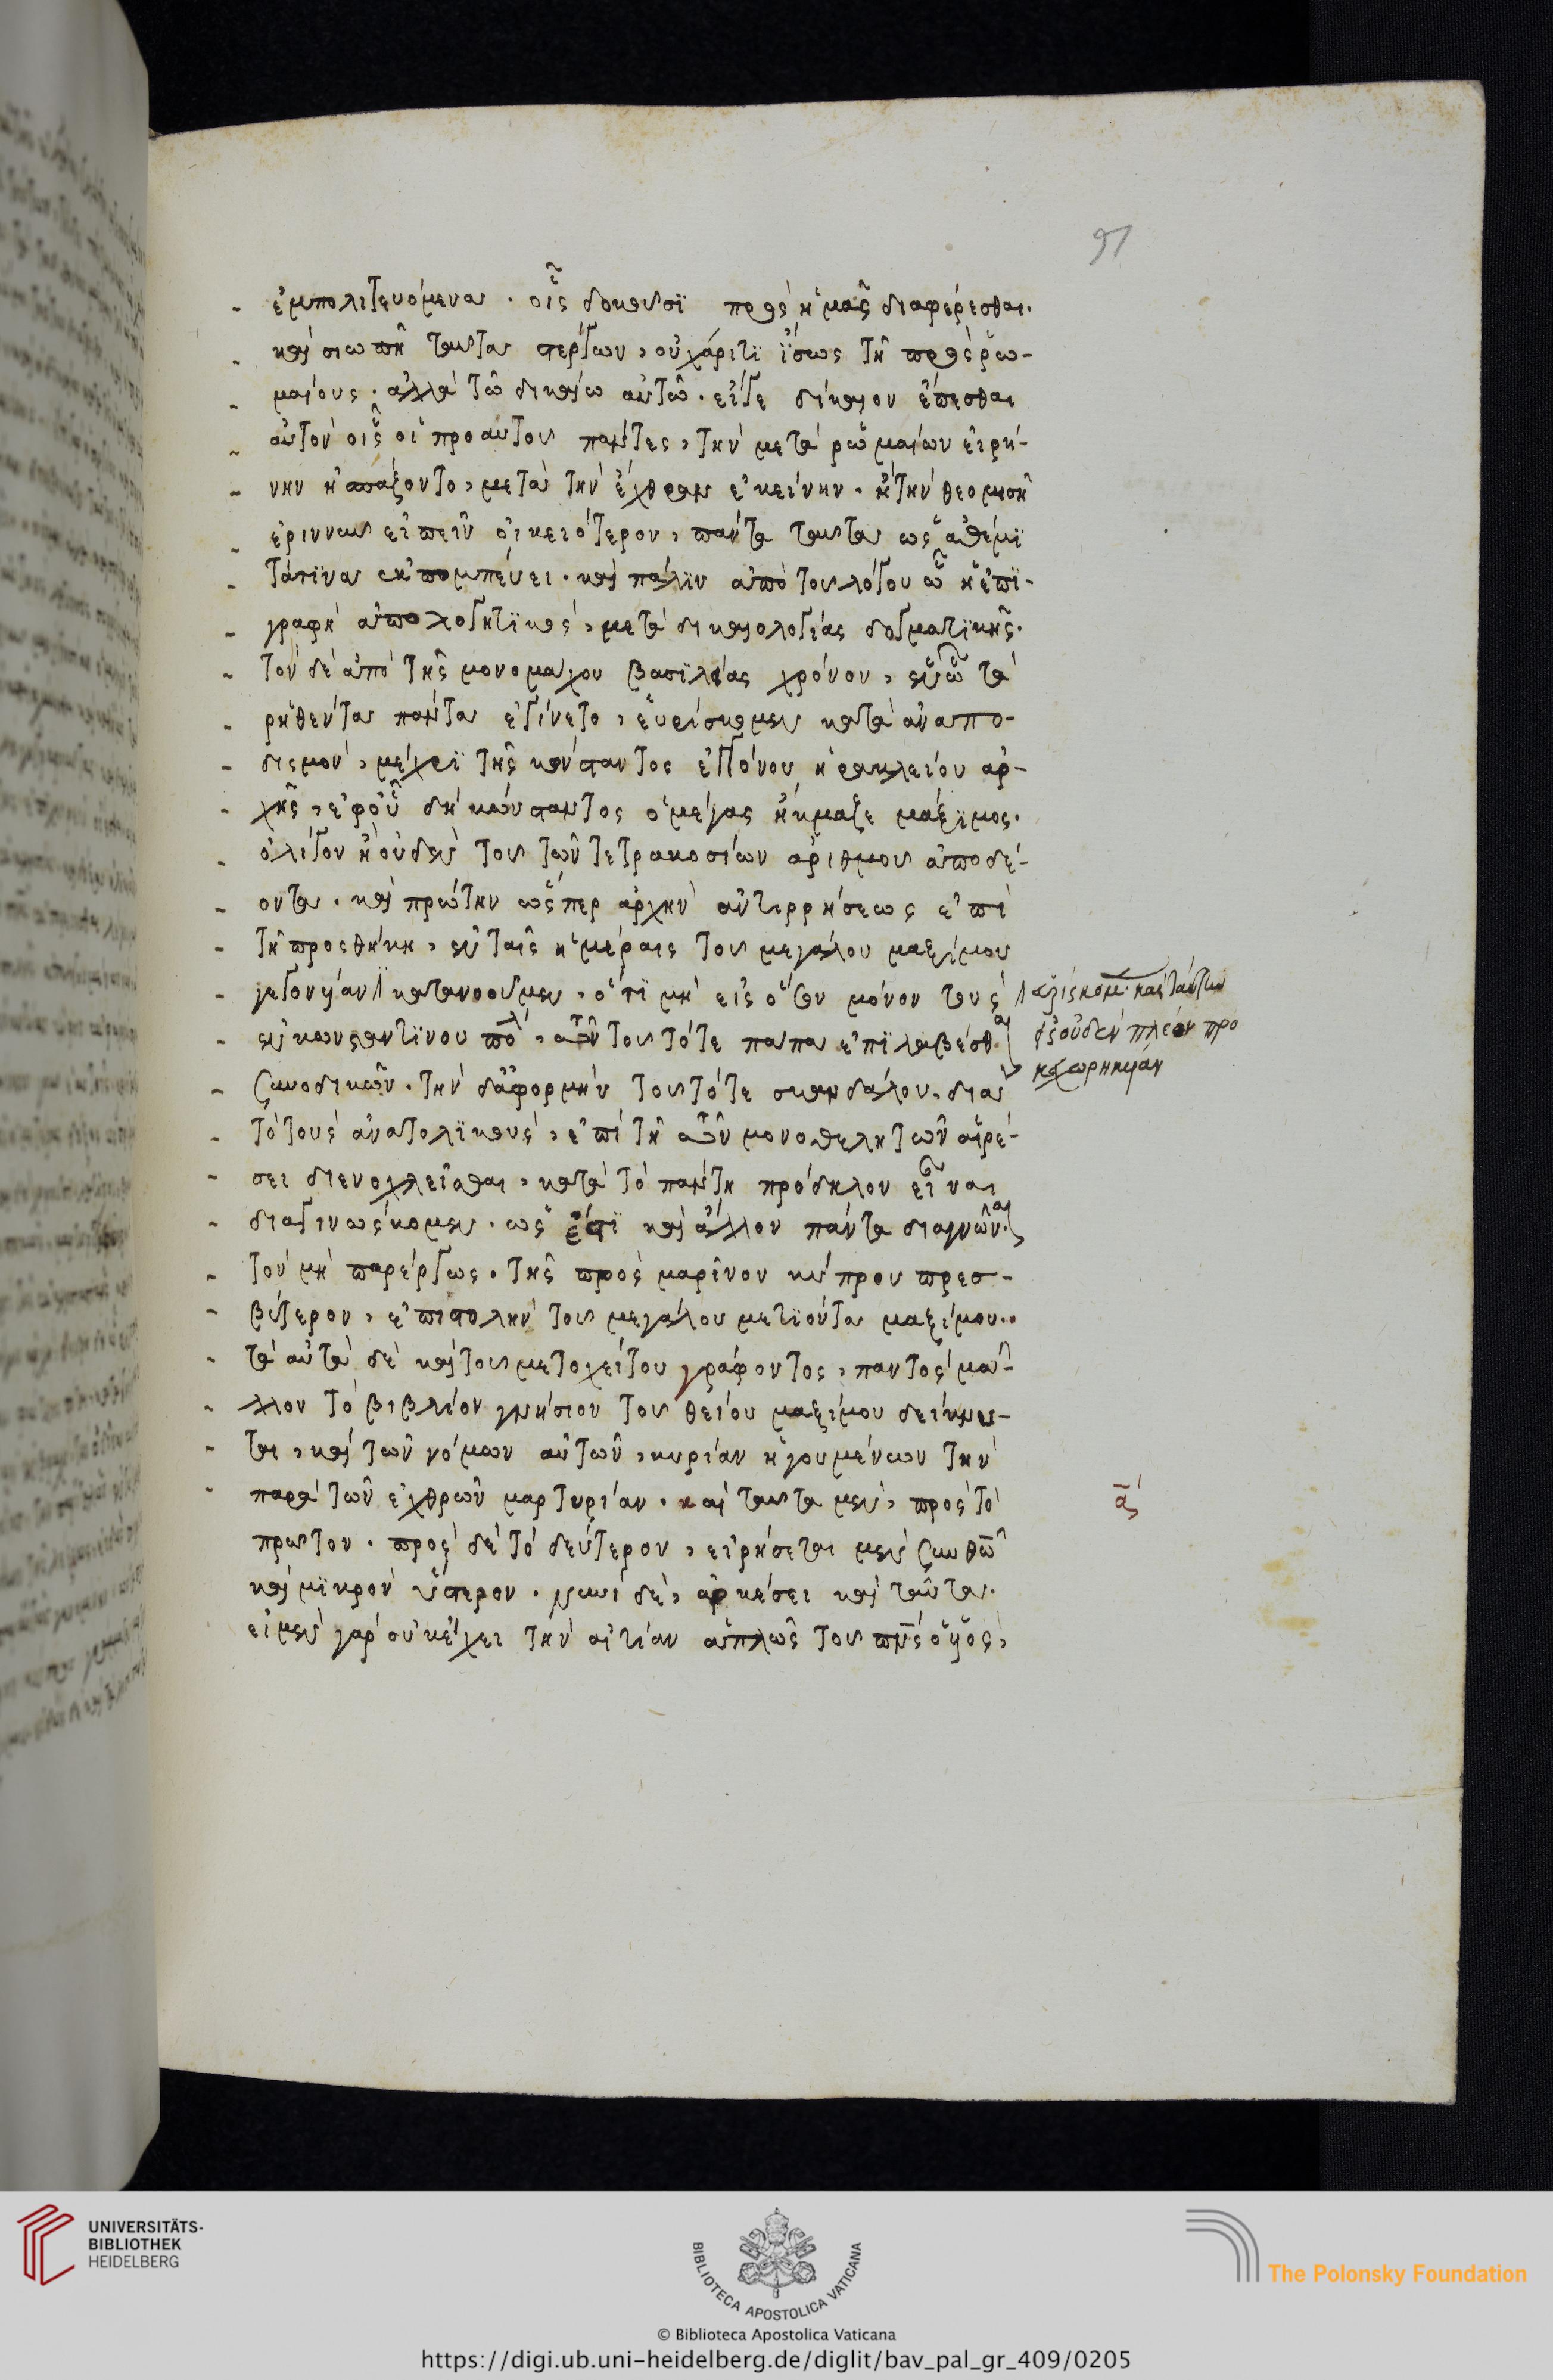 91
ἐμπολιτευόμενα. οἷς δοκοῦσϊ πρὸς ἡμᾶς διαφέρεσθαι.
καὶ σιωπῆ ταῦτα στέργων, οὐ χάριτϊ ἴσως τῆ πρὸς ῥω-
μαίους. ἀλλὰ τῶ δικαίω αὐτῶ. εἴγε δίκαιον ἕπεσθαι
αὐτὸν οἷς οἱ προ αὐτοῦ πάντες, τὴν μετὰ ῥωμαίων εἰρή-
νην ἠσπάζοντο, μετὰ τὴν ἔχθραν ἐκείνην. ἢ τὴν θεομισῆ
ἐριννῦν εἰπεῖν οἰκειότερον, πάντα ταῦτα ὡς ἀθέμϊ
τά τινα ἐκπομπεύει. καὶ πάλϊν ἀπὸ τοῦ λόγου ὧ ἡ ἐπϊ-
γραφὴ ἀπολογητϊκὸς, μετὰ δικαιολογίας δογματϊκῆς.
τὸν δὲ ἀπὸ τῆς μονομάχου βασϊλείας χρόνον, ἐν ὧ τὰ
ῥηθέντα πάντα ἐγίνετο, εὑρίσκομεν κατὰ ἀναπο-
δισμὸν, μέχρϊ τῆς κώνσταντος ἐγγόνου ἡρακλείου ἀρ-
χῆς, ἐφ οὗ δὴ κώνσταντος ὁ μέγας ἤκμαζε μάξϊμος.
ὀλίγον ἢ οὐδὲν τοῦ τῶν τετρακοσίων ἀριθμοῦ ἀποδέ-
οντα. καὶ πρώτην ὥσπερ ἀρχὴν ἀντιρρήσεως ἐπὶ
τῆ προσθήκη, ἐν ταῖς ἡμέραις τοῦ μεγάλου μαξίμου
γεγονυῖαν κατανοοῦμεν. ὅτϊ μὴ εἰς ὅσον μόνον τοὺς
ἐν κωνσταντίνου πόλ, τῶν τοῦ τότε πάπα ἐπϊλαβέσθαι
συνοδικῶν. τὴν δ ἀφορμὴν τοῦ τότε σκανδάλου, διὰ
τὸ τοὺς ἀνατολϊκοὺς, ἐπὶ τῆ τῶν μονοθελητῶν αἱρέ-
σει διενοχλεῖσθαι, κατὰ τὸ πάντη πρόδηλον εἶναι
διαγινώσκομεν. ὡς ἔστϊ καὶ ἄλλον πάντα διαγνῶναι
τὸν μὴ παρέργως. τῆς πρὸς μαρῖνον κύπρου πρεσ-
βύτερον, ἐπιστολὴν τοῦ μεγάλου μετϊόντα μαξίμου..
τὰ αὐτὰ δὲ καὶ τοῦ μετοχείτου γράφοντος, παντὸς μᾶ-
λλον τὸ βιβλίον γνήσιον τοῦ θείου μαξίμου δείκνυ-
ται, καὶ τῶν νόμων αὐτῶν, κυρίαν ἡγουμένων τὴν
παρὰ τῶν ἐχθρῶν μαρτυρίαν. καὶ ταῦτα μὲν, πρὸς τὸ
πρῶτον. πρὸς δὲ τὸ δεύτερον, εἰρήσεται μὲν σὺν θω
καὶ μϊκρὸν ὕστερον. νυνὶ δὲ, ἀρκέσει καὶ ταῦτα.
εἰ μὲν γὰρ οὐκ ἔχει τὴν αἰτίαν ἁπλῶς τοῦ πνς ὁ υἱὸς,
ἁλίσκομ καὶ ταύτην
ἐξ οὐδὲν πλέον προ
κεχωρηκυῖαν
ας
UNIVERSITÄTS-
BIBLIOTHEK
HEIDELBERG
BIBLIOTECA APOSTOLICA VATICANA
The Polonsky Foundation
© Biblioteca Apostolica Vaticana
https://digi.ub.uni-heidelberg.de/diglit/bav_pal_gr_409/0205